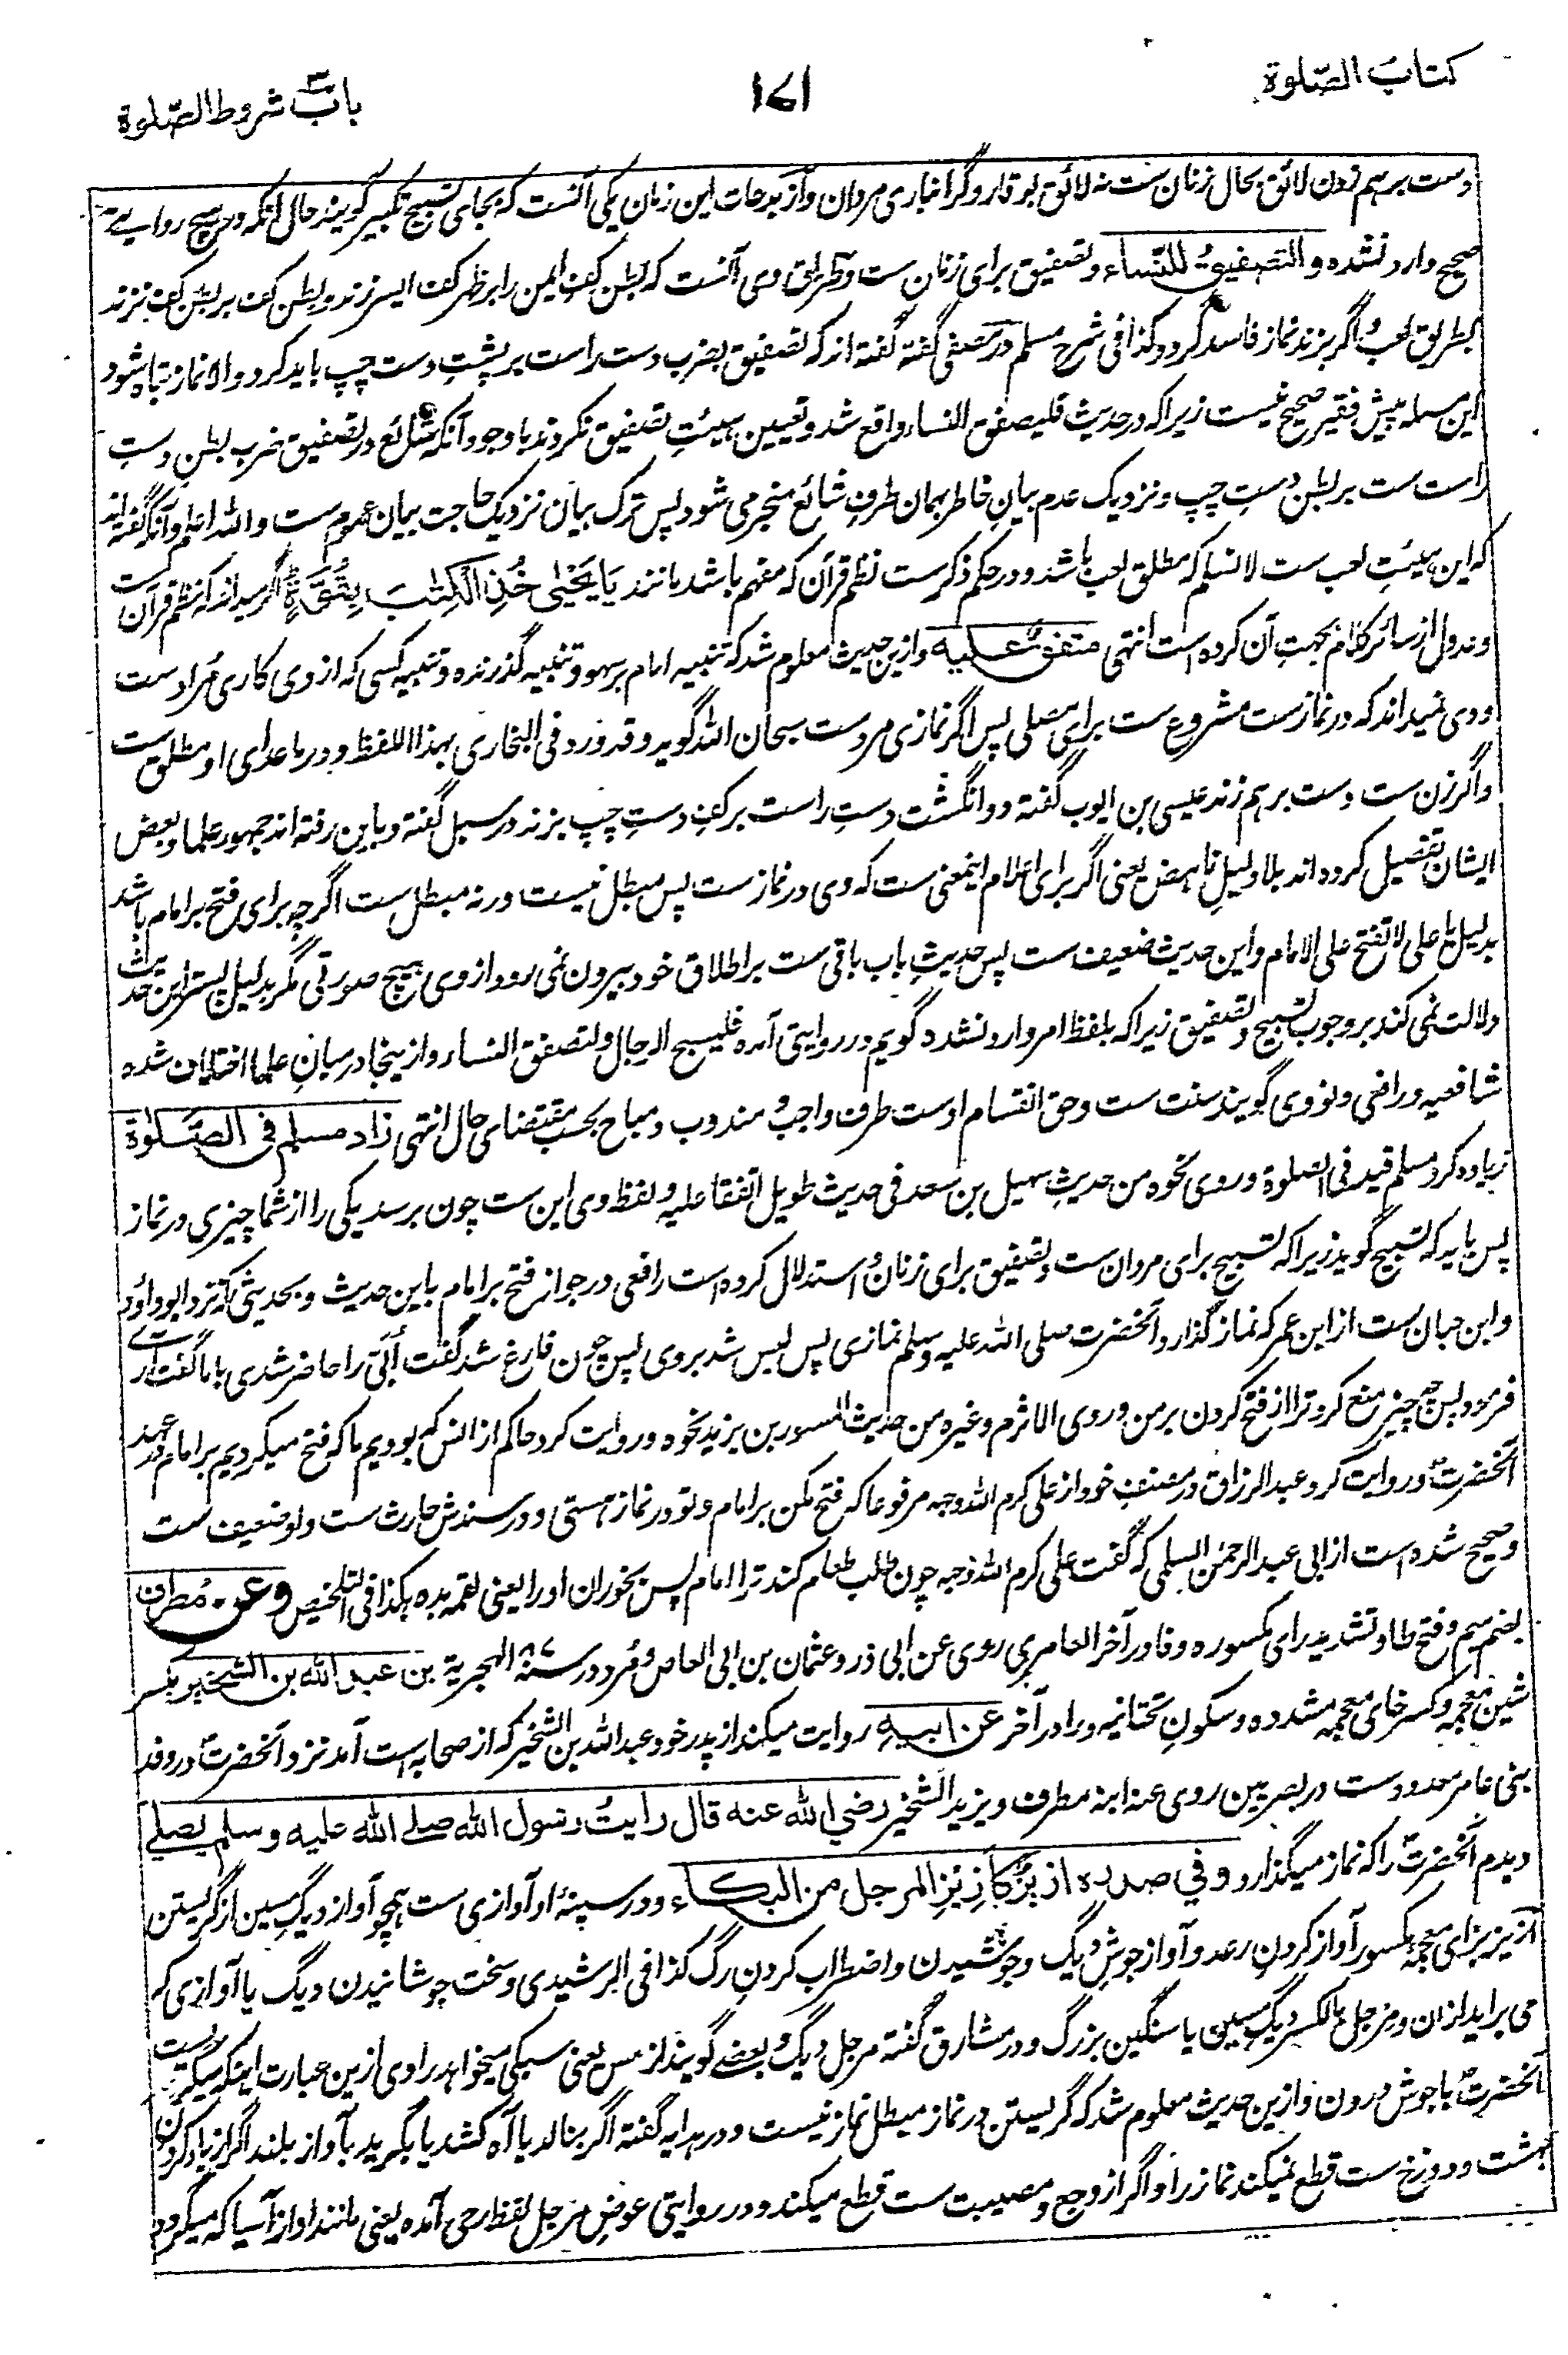 کتاب الصّلوة
۱۷۱
باب شروط الصّلوة
دست برہم زدن لائق بحال زنان ست نہ لائق بوقار و گرانباری مردان و از بدعات این زمان یکی آنست کہ بجای تسبیح تکبیر گویند حال آنکہ در ہیچ روایتے
صحیح وارد نشدہ والتصفیق للنّساء و تصفیق برای زنان ست و طریق وی آنست کہ بطن کفِ ایمن را بر ظہر کف ایسر زند و بطن کف بر بطن کف نزند
بطریق لعب اگر بزند نماز فاسد گردد و کذا فی شرح مسلم در مصفی گفتہ گفتہ اند کہ تصفیق بضرب دست راست بر پشتِ دست چپ باید کرد و الا نماز تباہ شود
این مسلہ پیش فقیر صحیح نیست زیراکہ در حدیث فلیصفق النساء واقع شد و تعیین ہیئتِ تصفیق نکردند با وجود آنکہ شائع در تصفیق ضرب بطنِ دستِ
راست ست بر بطن دستِ چپ و نزدیک عدم بیانِ خاطر بہمان طرفِ شائع منجر می شود پس ترک بیان نزدیک حاجت بیان عموم ست واللہ اعلم و آنکہ گفتہ اند
کہ این ہیئتِ لعب ست لا نسلم کہ مطلق لعب باشد و در حکم ذکرست نظم قرآن کہ مفہم باشد مانند یَا یَحْیٰی خُذِ الْکِتٰبَ بِقُوَّةٍ اگر میداند کہ نظم قرآن ست
و عدول از سائر کلام بجہتِ آن کردہ است انتہی متفق علیہ و ازین حدیث معلوم شد کہ تنبیہ امام بر سہو و تنبیہ گذرندہ و تنبیہ کسی کہ از وی کاری مُراد ست
و وی نمیداند کہ در نمازست مشروع ست برای مصلی پس اگر نمازی مردست سبحان اللہ گوید و قد ورد فی البخاری بہذا اللفظ و در ماعدای او مطلق ست
و اگر زن ست دست برہم زند عیسی بن ایوب گفتہ دو انگشت دستِ راست بر کفِ دستِ چپ بزند در سبل گفتہ و باین رفتہ اند جمہور علما و بعض
ایشان تفصیل کردہ اند بلا دلیلِ ناہض یعنی اگر برای اعلام اینمعنی ست کہ وی در نماز ست پس مبطل نیست ورنہ مبطل ست اگرچہ برای فتح بر امام باشد
بدلیل یا علی لا تفتح علی الامام و این حدیث ضعیف ست پس حدیثِ باب باقی ست بر اطلاق خود بیرون نمی رود از وی ہیچ صورتی مگر بدلیل پستر این حدیث
دلالت نمی کند بر وجوب تسبیح و تصفیق زیراکہ بلفظ امر وارد نشدہ گویم در روایتی آمدہ فلیسبح الرجال و لتصفق النساء و ازینجا درمیانِ علما اختلاف شدہ
شافعیہ و رافعی و نووی گویند سنت ست و حق انقسام اوست طرف واجب و مندوب و مباح بحسب مقتضای حال انتہی زاد مسلم فی الصّلوٰة
زیادہ کرد مسلم قید فی الصلوة و روی نحوہ من حدیثِ سہیل بن سعد فی حدیث طویل اتفقا علیہ و لفظ وی این ست چون برسد یکی را از شما چیزی در نماز
پس باید کہ تسبیح گوید زیراکہ تسبیح برای مردان ست و تصفیق برای زنان و استدلال کردہ است رافعی در جواز فتح بر امام باین حدیث و بحدیثی کہ نزد ابوداؤد
و ابن حبان ست از ابن عمر کہ نماز گذارد آنحضرت صلی اللہ علیہ وسلم نمازی پس لبس شد بروی پس چون فارغ شد گفت اُبَی را حاضر شدی با ما گفت آرے
فرمود پس چہ چیز منع کرد ترا از فتح کردن بر من و روی الاثرم و غیرہ من حدیث المسور بن یزید نحوہ و روایت کرد حاکم از انس کہ بودیم ما کہ فتح میکردیم بر امام در عہد
آنحضرتؐ و روایت کرد عبدالرزاق در مصنف خود از علی کرم اللہ وجہہ مرفوعا کہ فتح مکن بر امام و تو در نماز ہستی و در سندش حارث ست و او ضعیف ست
و صحیح شدہ است از ابی عبدالرحمٰن السلمی کہ گفت علی کرم اللہ وجہہ چون طلب طعام کند ترا امام پس بخوران او را یعنی لقمہ بدہ ہکذا فی التلخیص وعن مُطرف
بضم میم و فتح طا و تشدید رای مکسورہ و فا در آخر العامری روی عن ابی ذر و عثمان بن ابی العاص و مُرد در سنۃ ۸۷ الہجریۃ بن عبد اللہ بن الشخیر بکسر
شین معجمہ و کسر خای معجمہ مشددہ و سکونِ تحتانیہ و را در آخر عن ابیہ روایت میکند از پدر خود عبداللہ بن الشخیر کہ از صحابہ است آمد نزد آنحضرتؐ در وفد
بنی عامر معدودست در بصریین روی عنہ ابنہ مطرف و یزید الشخیر رضي اللہ عنہ قال رایتُ رسول اللہ صلے اللہ علیہ وسلم یصلے
دیدم آنحضرتؐ را کہ نماز میگذارد وفي صدرہ ازیزٌ کازیزِ المرجل من البکاء و در سینۂ او آوازی ست ہمچو آواز دیگ مسین از گریستن
ازیز بزای معجمۂ مکسور آواز کردنِ رعد و آواز جوشِ دیگ و جوشیدن و اضطراب کردنِ رگ کذا فی الرشیدی و سخت جوشانیدن دیگ یا آوازی کہ
می برآید ازان و مِرجل بالکسر دیگ مسین یا سنگین بزرگ و در مشارق گفتہ مرجل دیگ و بعضے گویند از مس یعنی سبکی میخواہد راوی ازین عبارت اینکہ میگریست
آنحضرتؐ با جوش درون و ازین حدیث معلوم شد کہ گریستن در نماز مبطل نماز نیست و در ہدایہ گفتہ اگر بنالد یا آہ کشد یا بگرید بآواز بلند اگر از یاد کردن
بہشت و دوزخ ست قطع نمیکند نماز را و اگر از وجع و مصیبت ست قطع میکند و در روایتی عوضِ مِرجل لفظ رحی آمدہ یعنی مانند آواز آسیا کہ میگردد